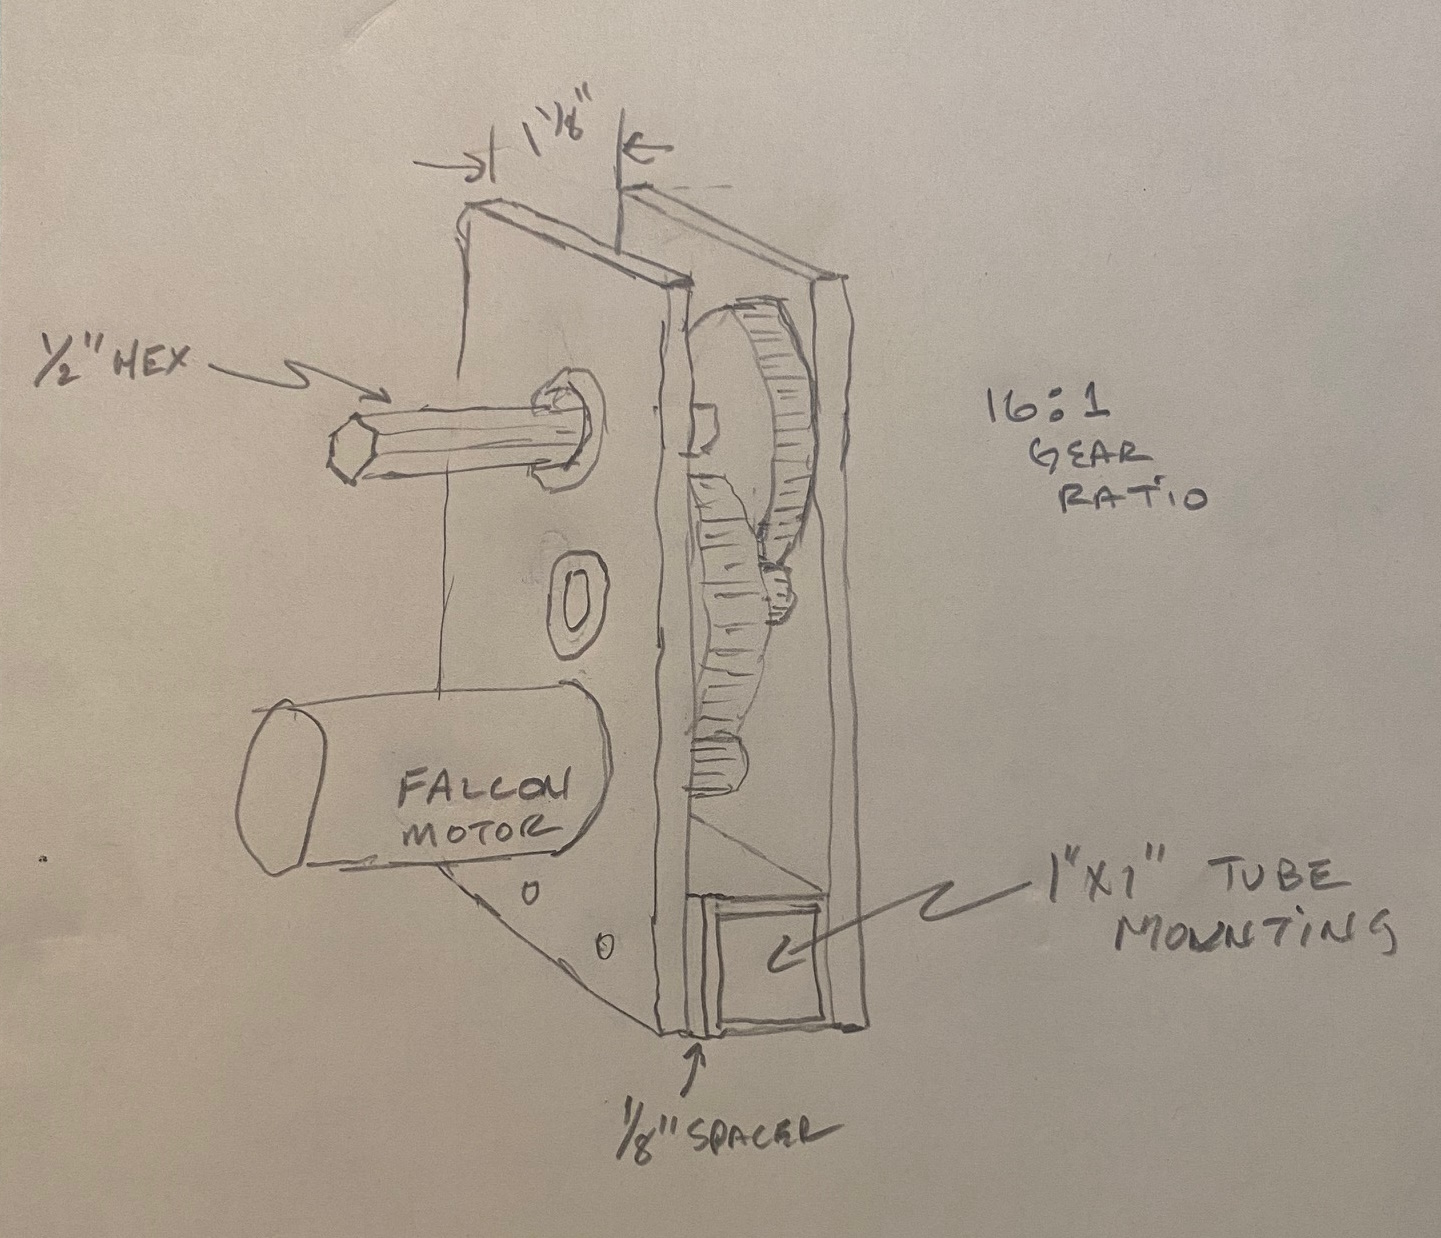 1 1/8"
1/2" HEX
16:1
GEAR
RATIO
FALCON
MOTOR
1" X 1" TUBE
MOUNTING
1/8" SPACER